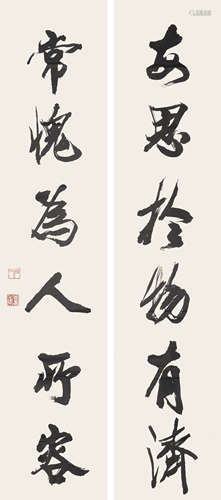 每思於物有濟
常愧為人所容